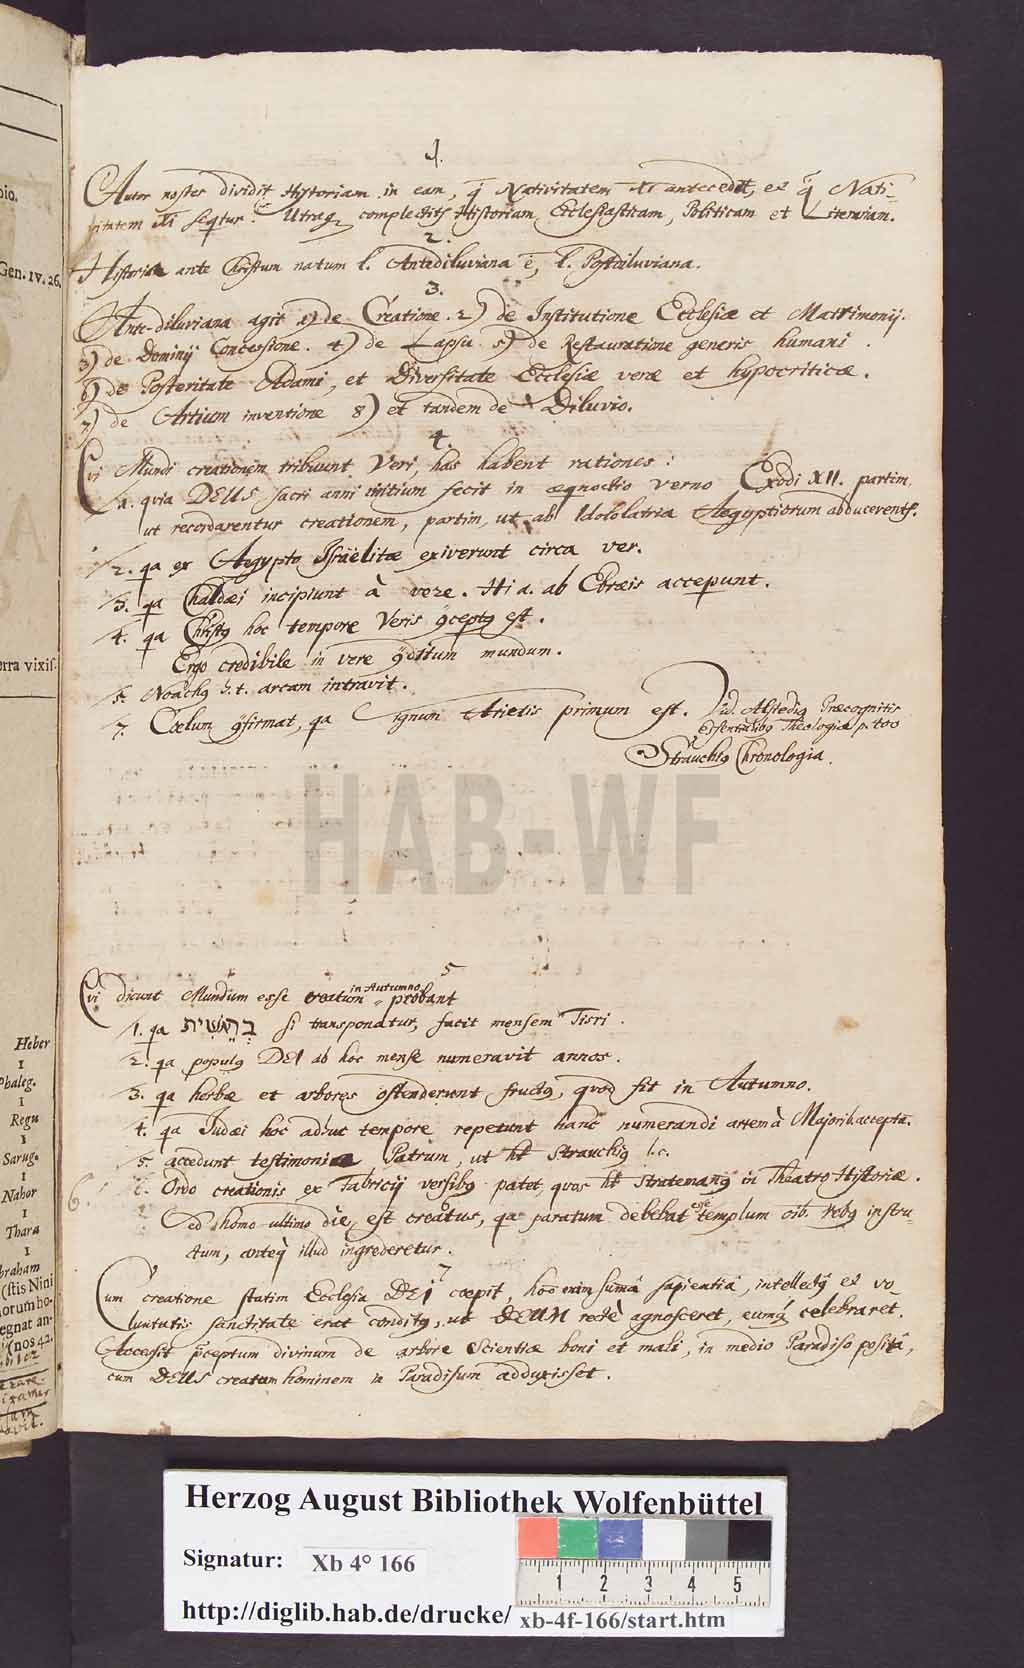 1.
Autor noster dividit Historiam in eam, q̃ Nativitatem Xti antecedit, et q̃ Nati-
vitatem Xti seqtur. Utraq complectit Historiam Ecclesiasticam, Politicam et Literariam.
2.
Historia ante Christum natum l. Antediluviana ẽ, l. Postdiluviana.
3.
Ante-diluviana agit 1) de Creatione. 2) de Institutione Ecclesiæ et Matrimonij.
3) de Dominij Concessione. 4) de Lapsu 5) de Restauratione generis humani.
6) de Posteritate Adami, et Diversitate Ecclesiæ veræ et hypocriticæ.
7) de Artium inventione 8) et tandem de Diluvio.
4.
Qvi Mundi creationem tribuunt Veri, has habent rationes:
1. qvia DEUS sacri anni initium fecit in æqnoctio verno Exodi XII. partim,
ut recordarentur creationem, partim, ut ab Idololatria Aegyptiorum abducerents.
2. qa ex Aegypto Israëlitæ exiverunt circa ver.
3. qa Chaldæi incipiunt à vere. Hi a. ab Ebræis accepunt.
4. qa Christq hoc tempore Veris 9ceptq est.
Ergo credibile in vere 9ditum mundum.
5. Noachq h. t. arcam intravit.
7. Cœlum 9firmat, qa Signum Arietis primum est. Vid. Alstediq Præcognitis
Theologiæ p. 400
Strauchiq Chronologia.
HAB-WF
5
Qvi dicunt Mundum esse creatum in Autumno probant
1. qa בְּרֵאשִׁית si transponatur, facit mensem Tisri.
2. qa populq DEI ab hoc mense numeravit annos.
3. qa herbæ et arbores ostenderunt fructq, qvod fit in Autumno.
4. qa Judæi hoc adhuc tempore repetunt hanc numerandi artem à Majorib. accepta.
5. accedunt testimonia Patrum, ut ht Strauchiq l.c.
6. Ordo creationis ex Fabricij versibq patet, qvos ht Stratemanq in Theatro Historiæ.
Sed homo ultimo die, est creatus, qa paratum debebat esse templum oib. rebq instru-
ctum, anteq̃ illud ingrederetur.
7
Cum creatione statim Ecclesia DEI cœpit, hoc enim summâ sapientiâ, intellectq et vo-
luntatis sanctitate erat conditq, ut DEUM rectè agnosceret, eumq́ celebraret.
Accessit p̃ceptum divinum de arbore Scientiæ boni et mali, in medio Paradiso positâ,
cum DEUS creatum hominem in Paradisum adduxisset.
Gen. IV. 26.
erra vixis
Heber
1
Phaleg.
1
Regu
1
Sarug.
1
Nahor
1
Thara
1
braham
(ftis Nini
orum ho-
egnat an-
(nos 42.
Herzog August Bibliothek Wolfenbüttel
Signatur: Xb 4° 166
1 2 3 4 5
http://diglib.hab.de/drucke/ xb-4f-166/start.htm